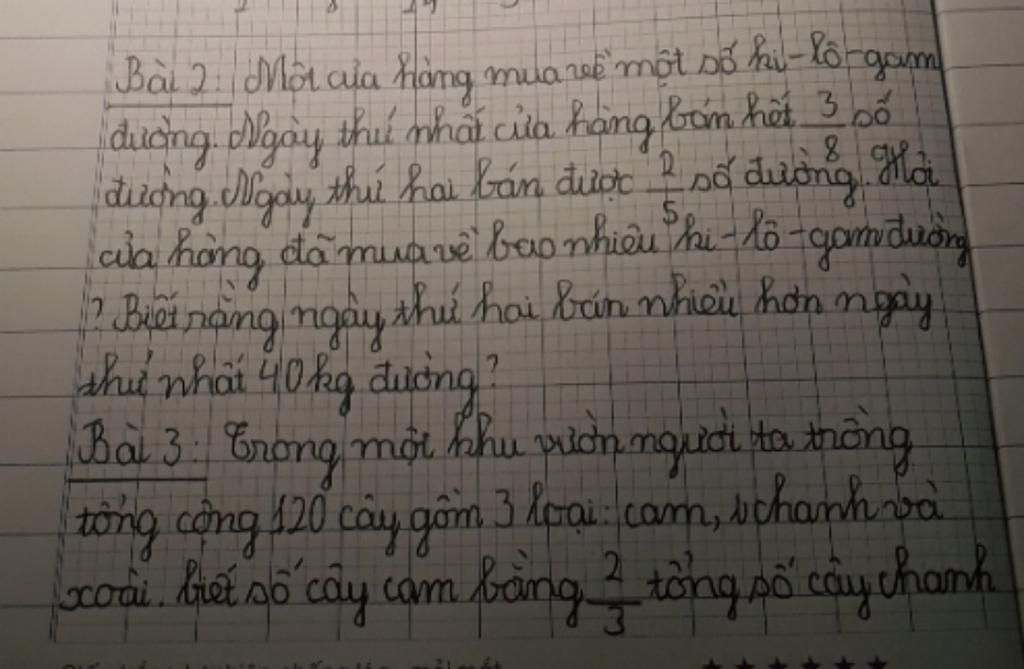 Bài 2: Một cửa hàng mua về một số ki-lô-gam
đường. Ngày thứ nhất cửa hàng bán hết 3/8 số
đường. Ngày thứ hai bán được 2/5 số đường. Hỏi
cửa hàng đã mua về bao nhiêu ki-lô-gam đường
? Biết rằng ngày thứ hai bán nhiều hơn ngày
thứ nhất 40kg đường?
Bài 3: Trong một khu vườn người ta trồng
tổng cộng 120 cây gồm 3 loại: cam, chanh và
xoài. Biết số cây cam bằng 2/3 tổng số cây chanh